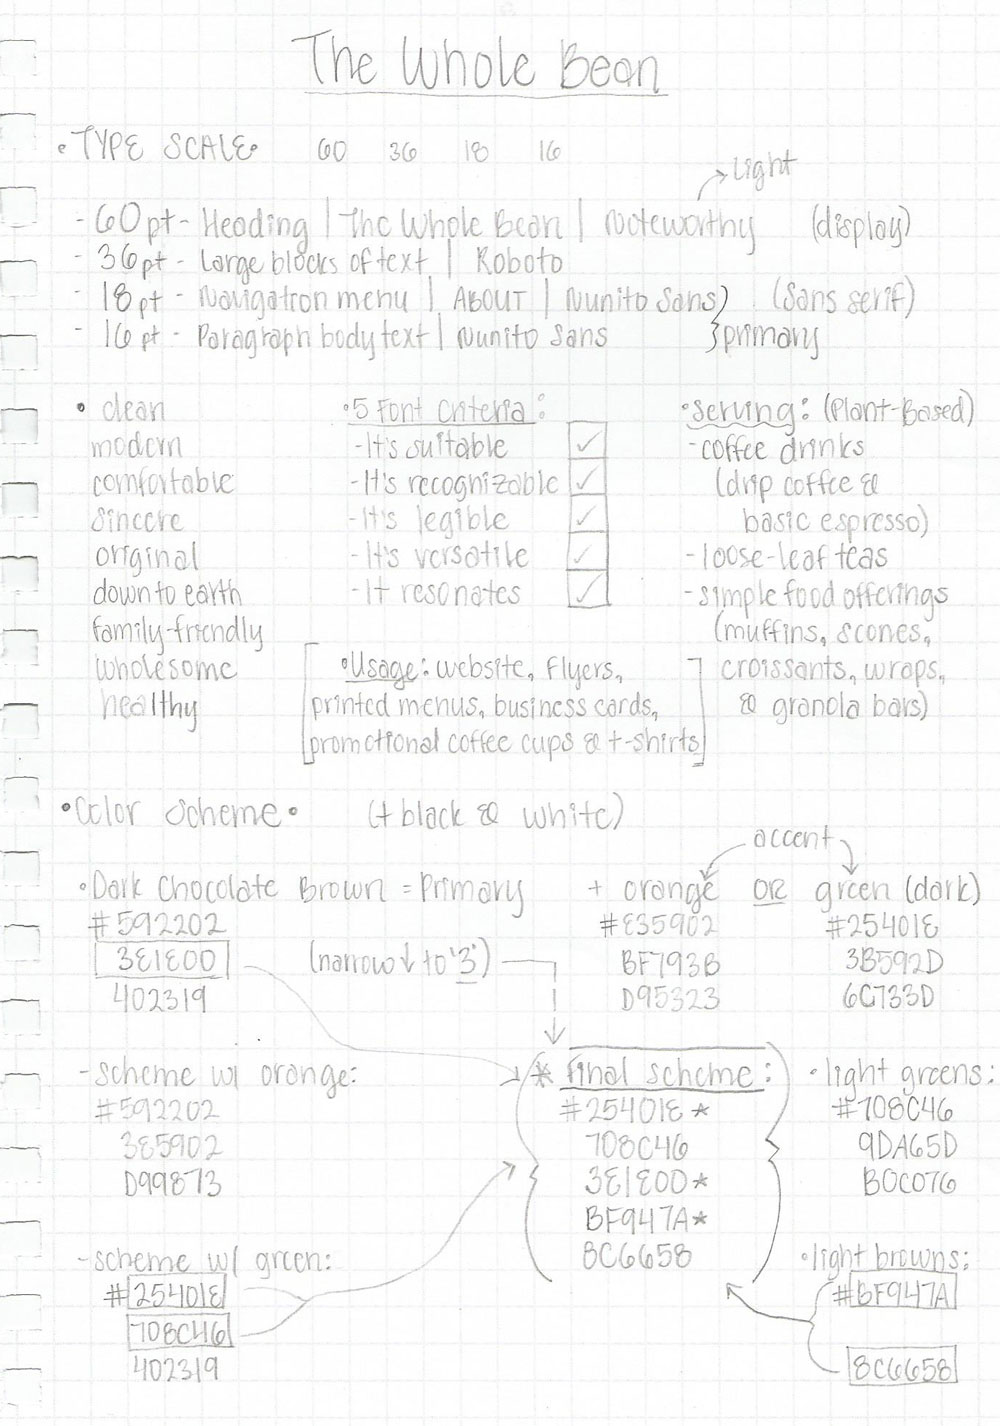 The Whole Bean
• TYPE SCALE • 60 36 18 16
Light
- 60pt - Heading | The Whole Bean | Noteworthy (display)
- 36pt - Large blocks of text | Roboto
- 18pt - Navigation menu | ABOUT | Nunito Sans) (Sans serif)
- 16pt - Paragraph body text | Nunito Sans }primary
• clean
modern
comfortable
sincere
original
down to earth
family-friendly
wholesome
healthy
• 5 Font Criteria:
- It's suitable ✓
- It's recognizable ✓
- It's legible ✓
- It's versatile ✓
- It resonates ✓
[• Usage: website, flyers,
printed menus, business cards,
promotional coffee cups & t-shirts]
• Serving: (Plant-Based)
- coffee drinks
(drip coffee &
basic espresso)
- loose-leaf teas
- simple food offerings
(muffins, scones,
croissants, wraps,
& granola bars)
• Color Scheme • (+ black & white)
accent
• Dark Chocolate Brown = Primary + orange OR green (dark)
#592202 #E35902 #25401E
3E1E00 (narrow ↓ to '3') BF793B 3B592D
402319 D95323 6C733D
- scheme w/ orange:
#592202
3E5902
D99873
* final scheme:
#25401E *
708C46
3E1E00 *
BF947A *
8C6658
• light greens:
#708C46
9DA65D
B0C076
- scheme w/ green:
#25401E
708C46
402319
• light browns:
#BF947A
8C6658